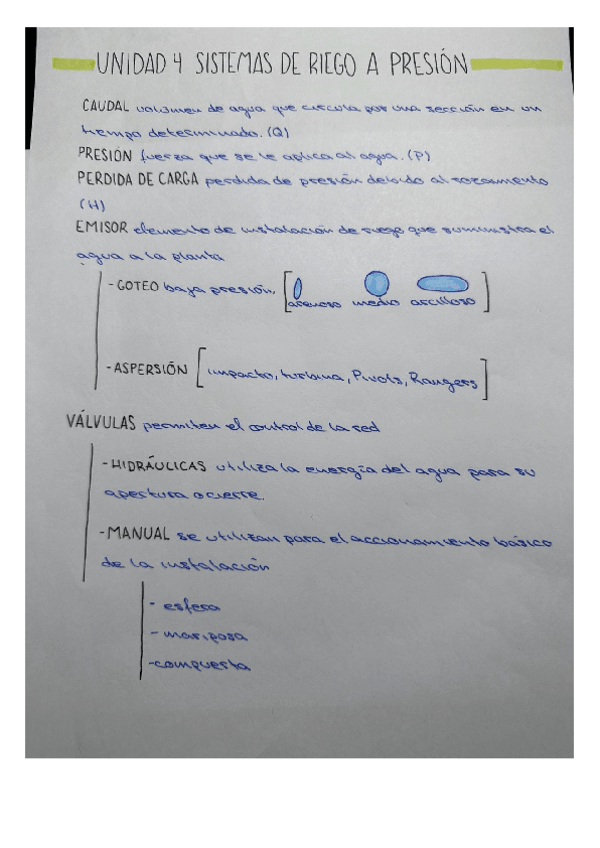 UNIDAD 4 SISTEMAS DE RIEGO A PRESIÓN
CAUDAL volumen de agua que circula por una sección en un
tiempo determinado. (Q)
PRESIÓN fuerza que se le aplica al agua. (P)
PERDIDA DE CARGA perdida de presión debido al rozamiento
(H)
EMISOR elemento de instalación de riego que suministra el
agua a la planta
-GOTEO baja presión.
arenoso medio arcilloso
-ASPERSIÓN impacto, turbina, Pivots, Rangers
VÁLVULAS permiten el control de la red
-HIDRÁULICAS utiliza la energía del agua para su
apertura o cierre.
-MANUAL se utilizan para el accionamiento básico
de la instalación
- esfera
- mariposa
-compuerta